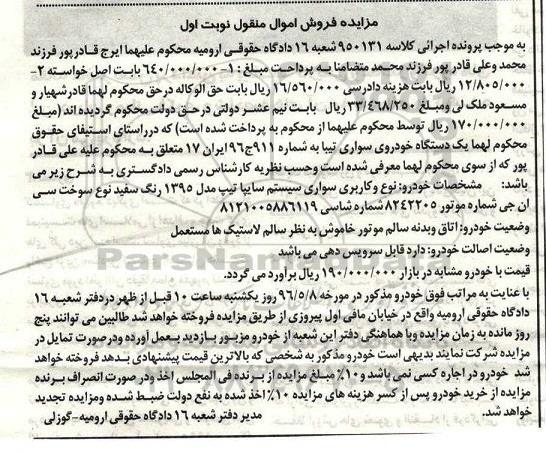 مزایده فروش اموال منقول نوبت اول
به موجب پرونده اجرائی کلاسه ۹۵۰۱۳۱ شعبه ۱۶ دادگاه حقوقی ارومیه محکوم علیهما ایرج قادرپور فرزند
محمد وعلی قادر پور فرزند محمد متضامنا به پرداخت مبلغ : ۱- ۶۴۰/۰۰۰/۰۰۰ بابت اصل خواسته ۲-
۱۲/۸۰۵/۰۰۰ ریال بابت هزینه دادرسی ۱۶/۵۶۰/۰۰۰ ریال بابت حق الوکاله درحق محکوم لهما قادرشهیار و
مسعود ملک لی ومبلغ ۳۳/۴۶۸/۲۵۰ ریال بابت نیم عشر دولتی درحق دولت محکوم گردیده اند (مبلغ
۱۷۰/۰۰۰/۰۰۰ ریال توسط محکوم علیهما از محکوم به پرداخت شده است) که درراستای استیفای حقوق
محکوم لهما یک دستگاه خودروی سواری تیبا به شماره ۹۱۱ج۹۶ ایران ۱۷ متعلق به محکوم علیه علی قادر
پور که از سوی محکوم لهما معرفی شده است وحسب نظریه کارشناس رسمی دادگستری به شرح زیر می
باشد: مشخصات خودرو: نوع وکاربری سواری سیستم سایپا تیپ مدل ۱۳۹۵ رنگ سفید نوع سوخت سی
ان جی شماره موتور ۸۲۴۲۲۰۵ شماره شاسی ۸۱۲۱۰۰۵۸۸۶۱۱۹
وضعیت خودرو: اتاق وبدنه سالم موتور خاموش به نظر سالم لاستیک ها مستعمل
وضعیت اصالت خودرو: دارد قابل سرویس دهی می باشد
قیمت با خودرو مشابه در بازار ۱۹۰/۰۰۰/۰۰۰ ریال برآورد می گردد.
با عنایت به مراتب فوق خودرو مذکور در مورخه ۹۶/۵/۸ روز یکشنبه ساعت ۱۰ قبل از ظهر دردفتر شعبه ۱۶
دادگاه حقوقی ارومیه واقع در خیابان مافی اول پیروزی از طریق مزایده فروخته خواهد شد طالبین می توانند پنج
روز مانده به زمان مزایده وبا هماهنگی دفتر این شعبه از خودرو مزبور بازدید بعمل آورده ودرصورت تمایل در
مزایده شرکت نمایند بدیهی است خودرو مذکور به شخصی که بالاترین قیمت پیشنهادی بدهد فروخته خواهد
شد خودرو در اجاره کسی نمی باشد و ۱۰٪ مبلغ مزایده از برنده فی المجلس اخذ ودر صورت انصراف برنده
مزایده از خرید خودرو پس از کسر هزینه های مزایده ۱۰٪ اخذ شده به نفع دولت ضبط شده ومزایده تجدید
خواهد شد. مدیر دفتر شعبه ۱۶ دادگاه حقوقی ارومیه-گوزلی